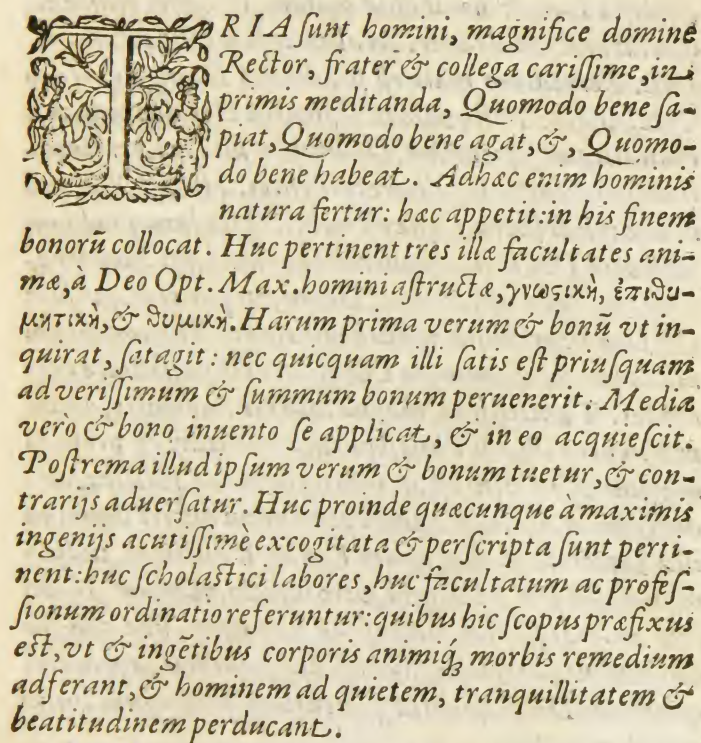 TRIA ſunt homini, magnifice domine
Rector, frater & collega cariſſime, in
primis meditanda, Quomodo bene ſa-
piat, Quomodo bene agat, &, Quomo-
do bene habeat. Ad hæc enim hominis
natura fertur: hæc appetit: in his finem
bonorū collocat. Huc pertinent tres illæ facultates ani-
mæ, à Deo Opt. Max. homini aſtructæ, γνωϛικὴ, ἐπιθυ-
μητικὴ, & θυμικὴ. Harum prima verum & bonū vt in-
quirat, ſatagit: nec quicquam illi ſatis eſt priuſquam
ad veriſſimum & ſummum bonum peruenerit. Media
verò & bono inuento ſe applicat, & in eo acquieſcit.
Poſtrema illud ipſum verum & bonum tuetur, & con-
trarijs aduerſatur. Huc proinde quæcunque à maximis
ingenijs acutiſſimè excogitata & perſcripta ſunt perti-
nent: huc ſcholaſtici labores, huc facultatum ac profeſ-
ſionum ordinatio referuntur: quibus hic ſcopus præfixus
eſt, vt & ingētibus corporis animiq́ꝫ morbis remedium
adferant, & hominem ad quietem, tranquillitatem &
beatitudinem perducant.